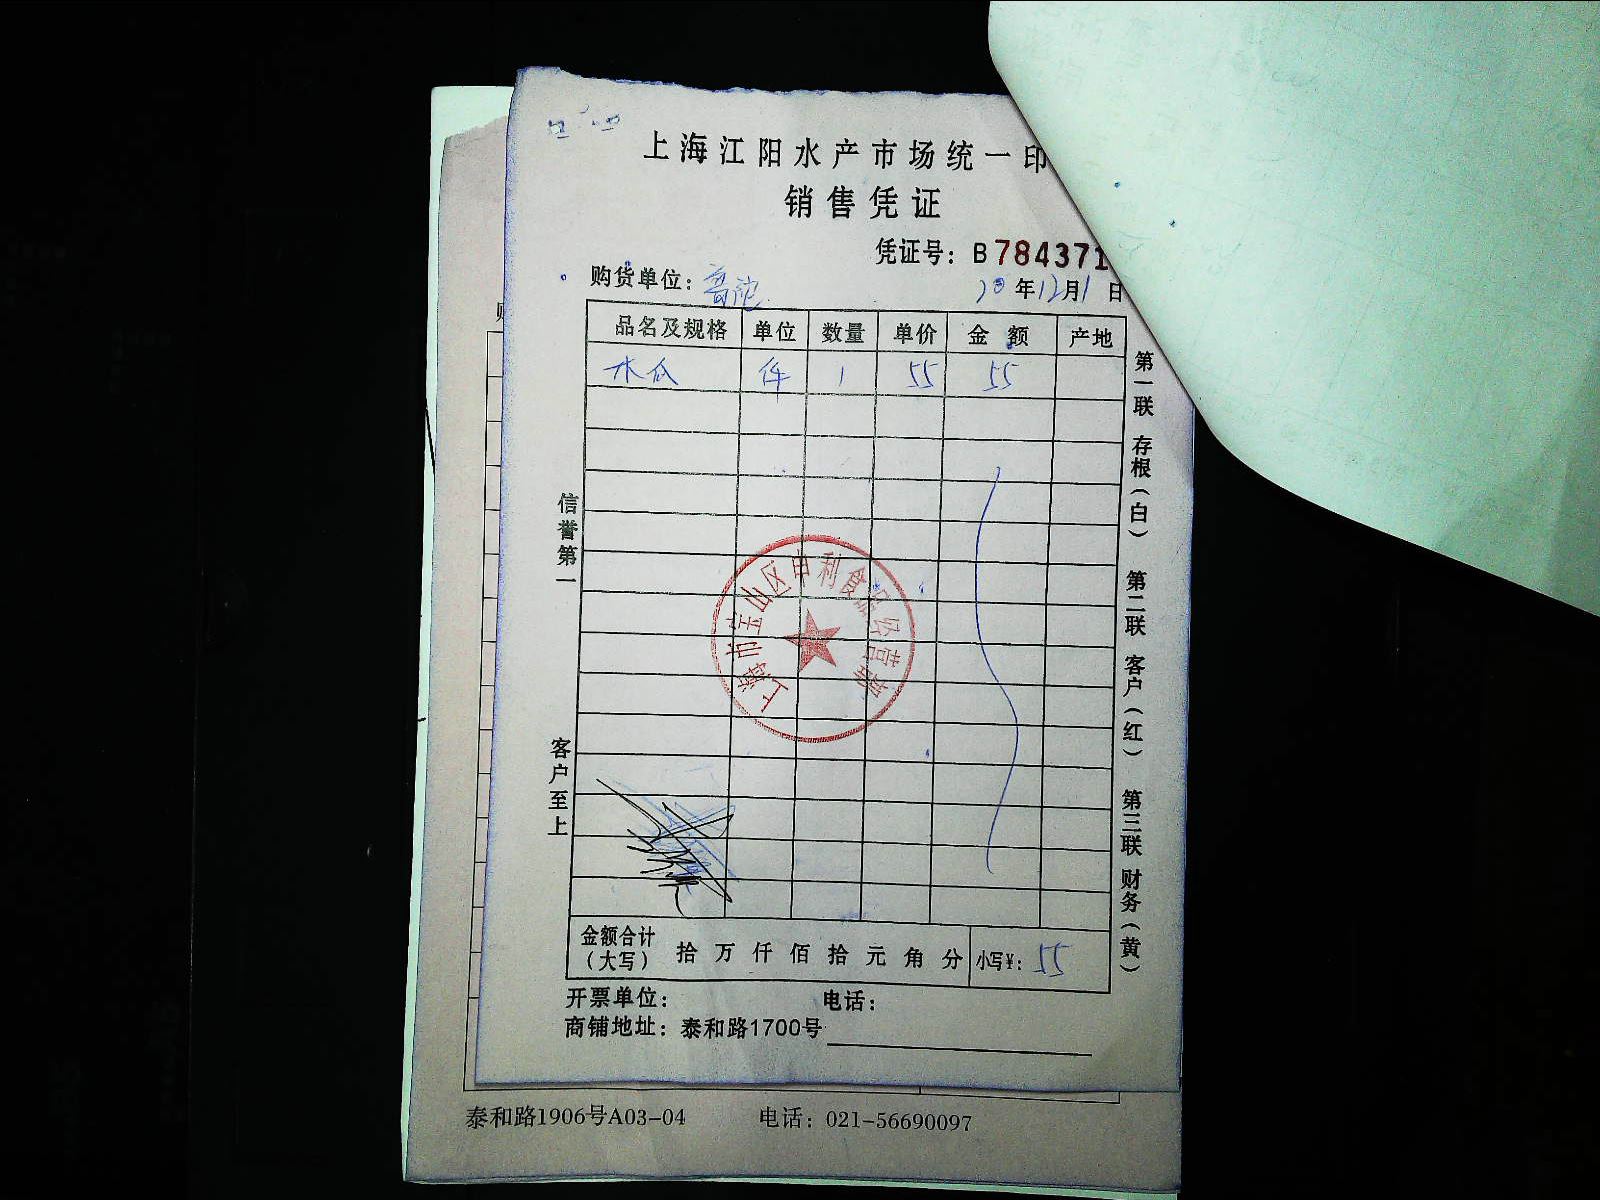 上海江阳水产市场统一印
销售凭证
凭证号：B784371
购货单位：
20年12月1日
品名及规格 单位 数量 单价 金额 产地
木瓜 件 1 55 55
信誉第一
客户至上
第一联 存根（白） 第二联 客户（红） 第三联 财务（黄）
上海市宝山区申利食品经营部
金额合计（大写） 拾 万 仟 佰 拾 元 角 分 小写¥：55
开票单位： 电话：
商铺地址：泰和路1700号
泰和路1906号A03-04 电话：021-56690097